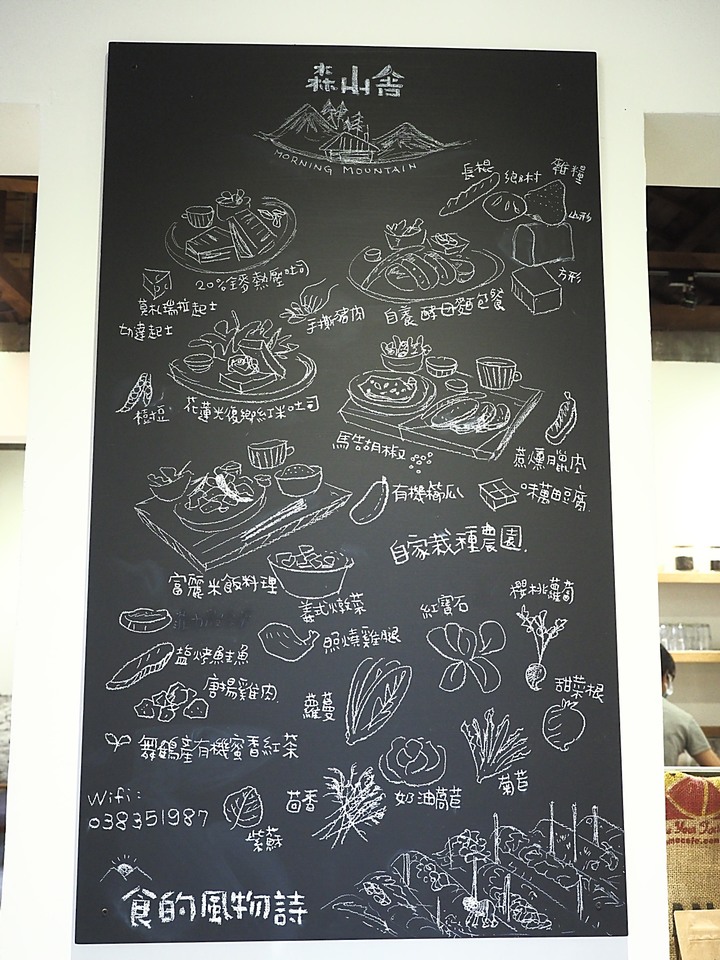 森山舍
MORNING MOUNTAIN
長棍
鄉村
雜糧
山形
方形
20%全麥熱壓吐司
莫札瑞拉起士
切達起士
手撕豬肉
自養酵母麵包餐
花蓮光復鄉紅米吐司
馬告胡椒
蔗燻臘肉
有機櫛瓜
味萬田豆腐
自家栽種農園
富麗米飯料理
義式燉菜
紅寶石
櫻桃蘿蔔
鹽烤鮭魚
照燒雞腿
唐揚雞肉
蘿蔓
甜菜根
舞鶴產有機蜜香紅茶
Wifi:
038351987
紫蘇
茴香
奶油萵苣
菊苣
食的風物詩